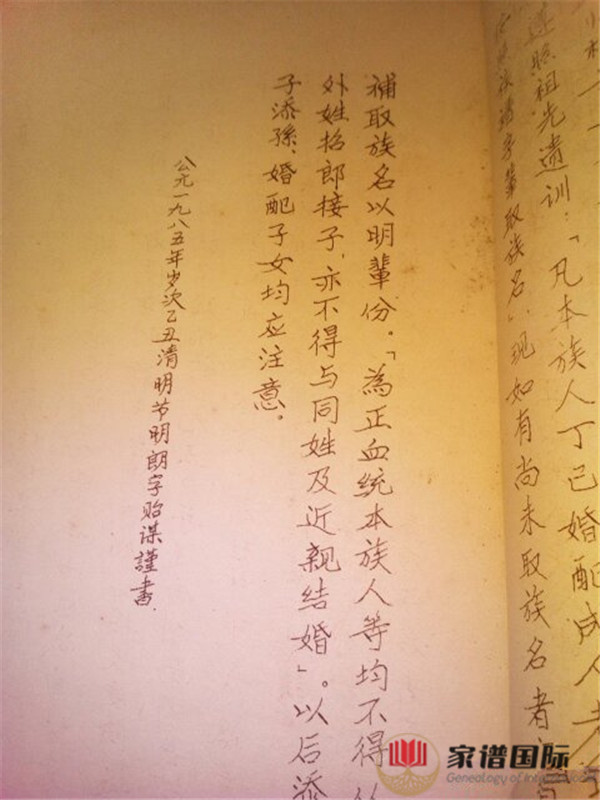 遵照祖先遗训：「凡本族人丁已婚配成人
字辈取族名」，现如有尚未取族名者
补取族名以明辈份。「為正血统本族人等均不得
外姓招郎接子，亦不得与同姓及近親结婚」。以后添
子添孫、婚配子女均应注意。
公元一九八五年岁次乙丑清明节明朗字贻谋謹書.
家谱国际
Genealogy of International